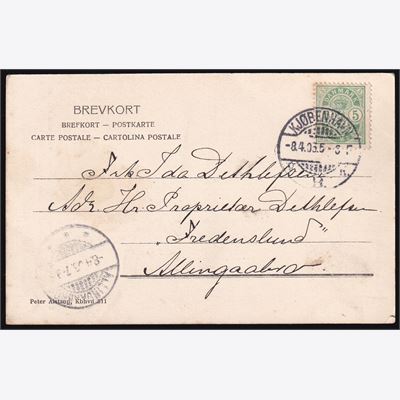 BREVKORT
BREFKORT — POSTKARTE
CARTE POSTALE — CARTOLINA POSTALE
DANMARK
5
KJØBENHAVN
-8.4.05.5-6 E
K.
Frk. Ida Dethlefsen
Adr. Hr. Proprietær Dethlefsen
„Fredenslund"
Allingaabro.
-9.4.05.7-
ALLINGAABRO
Peter Alstrup, Kbhvn 311